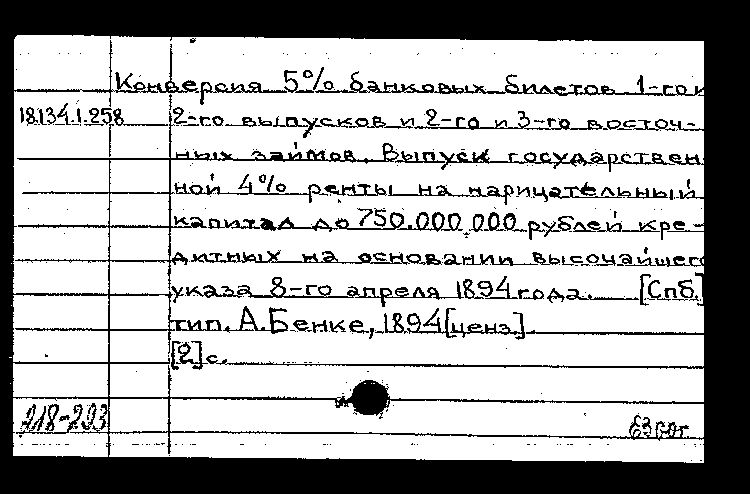 Конверсия 5% банковых билетов 1-го и
18.134.1.258 2-го выпусков и 2-го и 3-го восточ-
ных займов. Выпуск государствен
ной 4% ренты на нарицательный
капитал до 750.000.000 рублей кре-
дитных на основании высочайшего
указа 8-го апреля 1894 года. [Спб.]
тип. А. Бенке, 1894 [ценз].
[2] с.
218-293